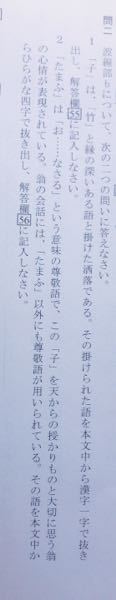 問二　波線部もについて、次の二つの問いに答えなさい。
1　「子」は、「竹」と縁の深いある語と掛けた洒落である。その掛けられた語を本文中から漢字一字で抜き
出し、解答欄55に記入しなさい。
2　「たまふ」は「お……なさる」という意味の尊敬語で、この「子」を天からの授かりものと大切に思う翁
の心情が表現されている。翁の会話には、「たまふ」以外にも尊敬語が用いられている。その語を本文中か
らひらがな四字で抜き出し、解答欄56に記入しなさい。